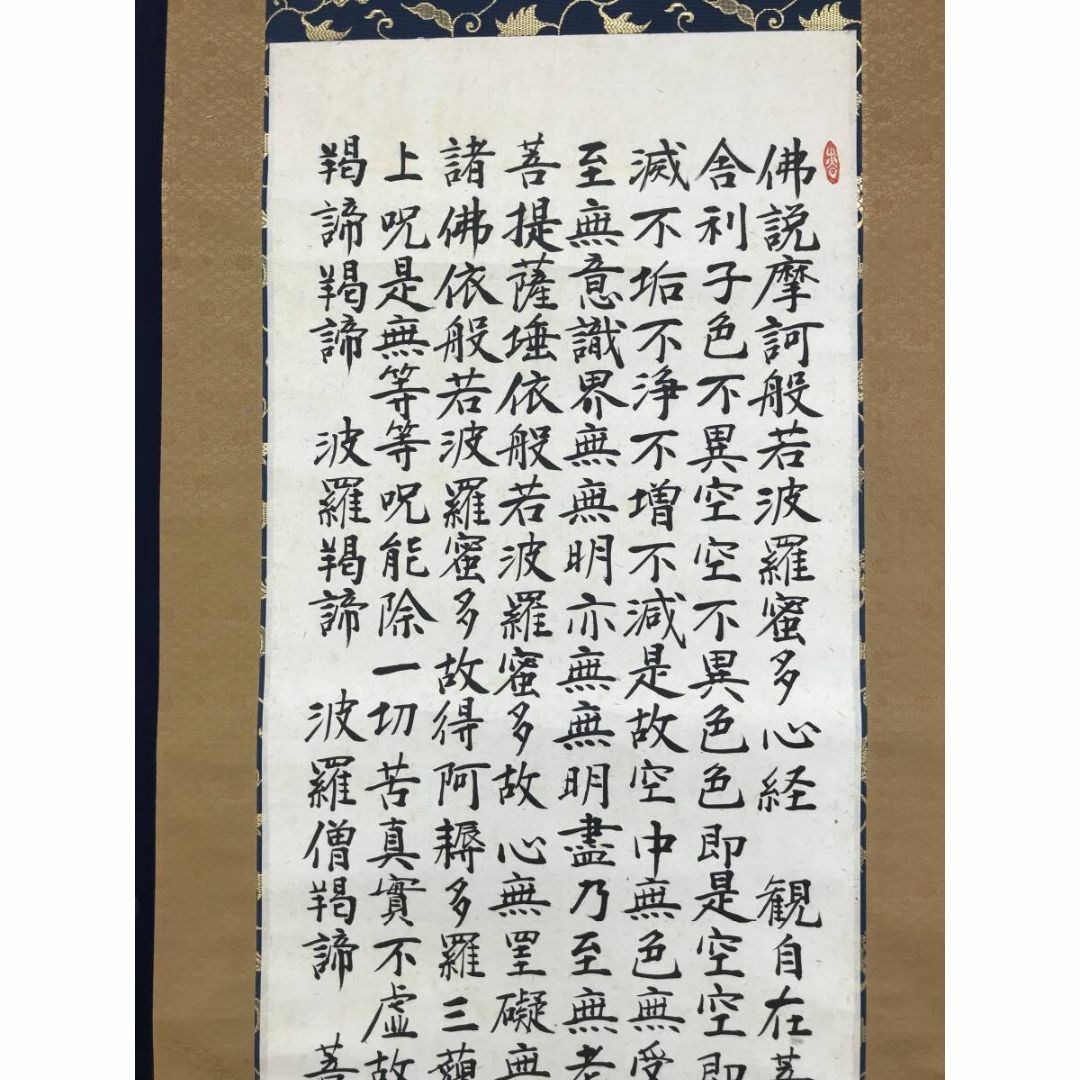 佛説摩訶般若波羅蜜多心経 観自在菩
舎利子色不異空空不異色色即是空空即
滅不垢不浄不増不減是故空中無色無受
至無意識界無無明亦無無明盡乃至無老
菩提薩埵依般若波羅蜜多故心無罣礙無
諸佛依般若波羅蜜多故得阿耨多羅三藐
上呪是無等等呪能除一切苦真實不虚故
羯諦羯諦 波羅羯諦 波羅僧羯諦 菩